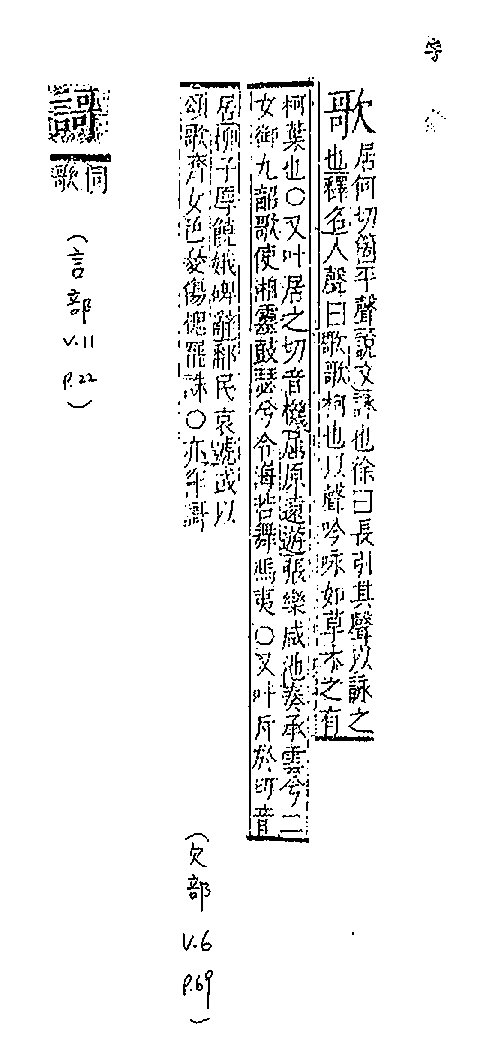 字
歌 居何切箇平聲說文詠也徐曰長引其聲以詠之
也釋名人聲曰歌歌柯也以聲吟咏如草木之有
柯葉也○又叶居之切音機屈原遠遊張樂咸池奏承雲兮二
女御九韶歌使湘靈鼓瑟兮令海若舞馮夷○又叶斤於切音
居柳子厚饒娥碑辭鄱民哀號或以
頌歌齊女色憂傷槐罷誅○亦作謌
(欠部
V.6
P.69
)
謌
同
歌
(言部
V.11
P.22
)